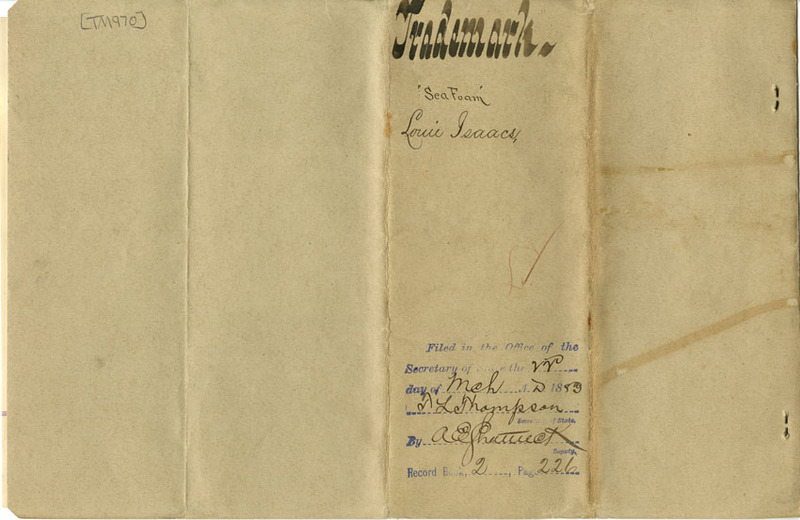 [TM970]
Trademark.
"Sea Foam"
Louis Isaacs,
Filed in the Office of the
Secretary of the
day of Mch A.D 1883
T L Thompson
Secretary of State,
By A E Shattuck
Deputy,
Record Book, 2, Page 226